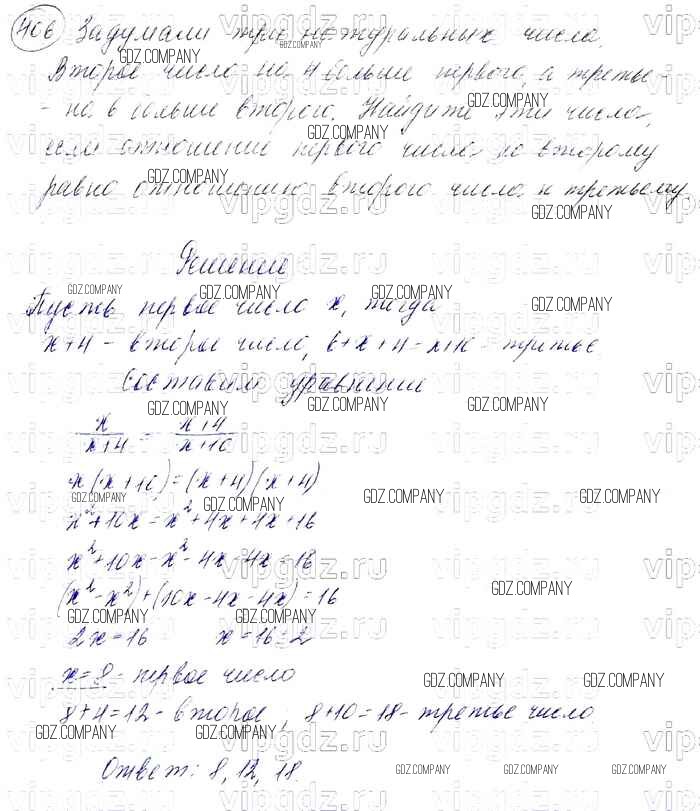 406 Задумали три натуральных числа.
Второе число на 4 больше первого, а третье -
- на 6 больше второго. Найдите эти числа,
если отношение первого числа ко второму
равно отношению второго числа к третьему.
Решение
Пусть первое число x, тогда
x+4 - второе число, 6+x+4=x+10 - третье
Составим уравнение
x/(x+4) = (x+4)/(x+10)
x(x+10)=(x+4)(x+4)
x²+10x=x²+4x+4x+16
x²+10x-x²-4x-4x=16
(x²-x²)+(10x-4x-4x)=16
2x=16 x=16:2
x=8 - первое число
8+4=12 - второе; 8+10=18 - третье число
Ответ: 8, 12, 18.
GDZ.COMPANY
vipgdz.ru